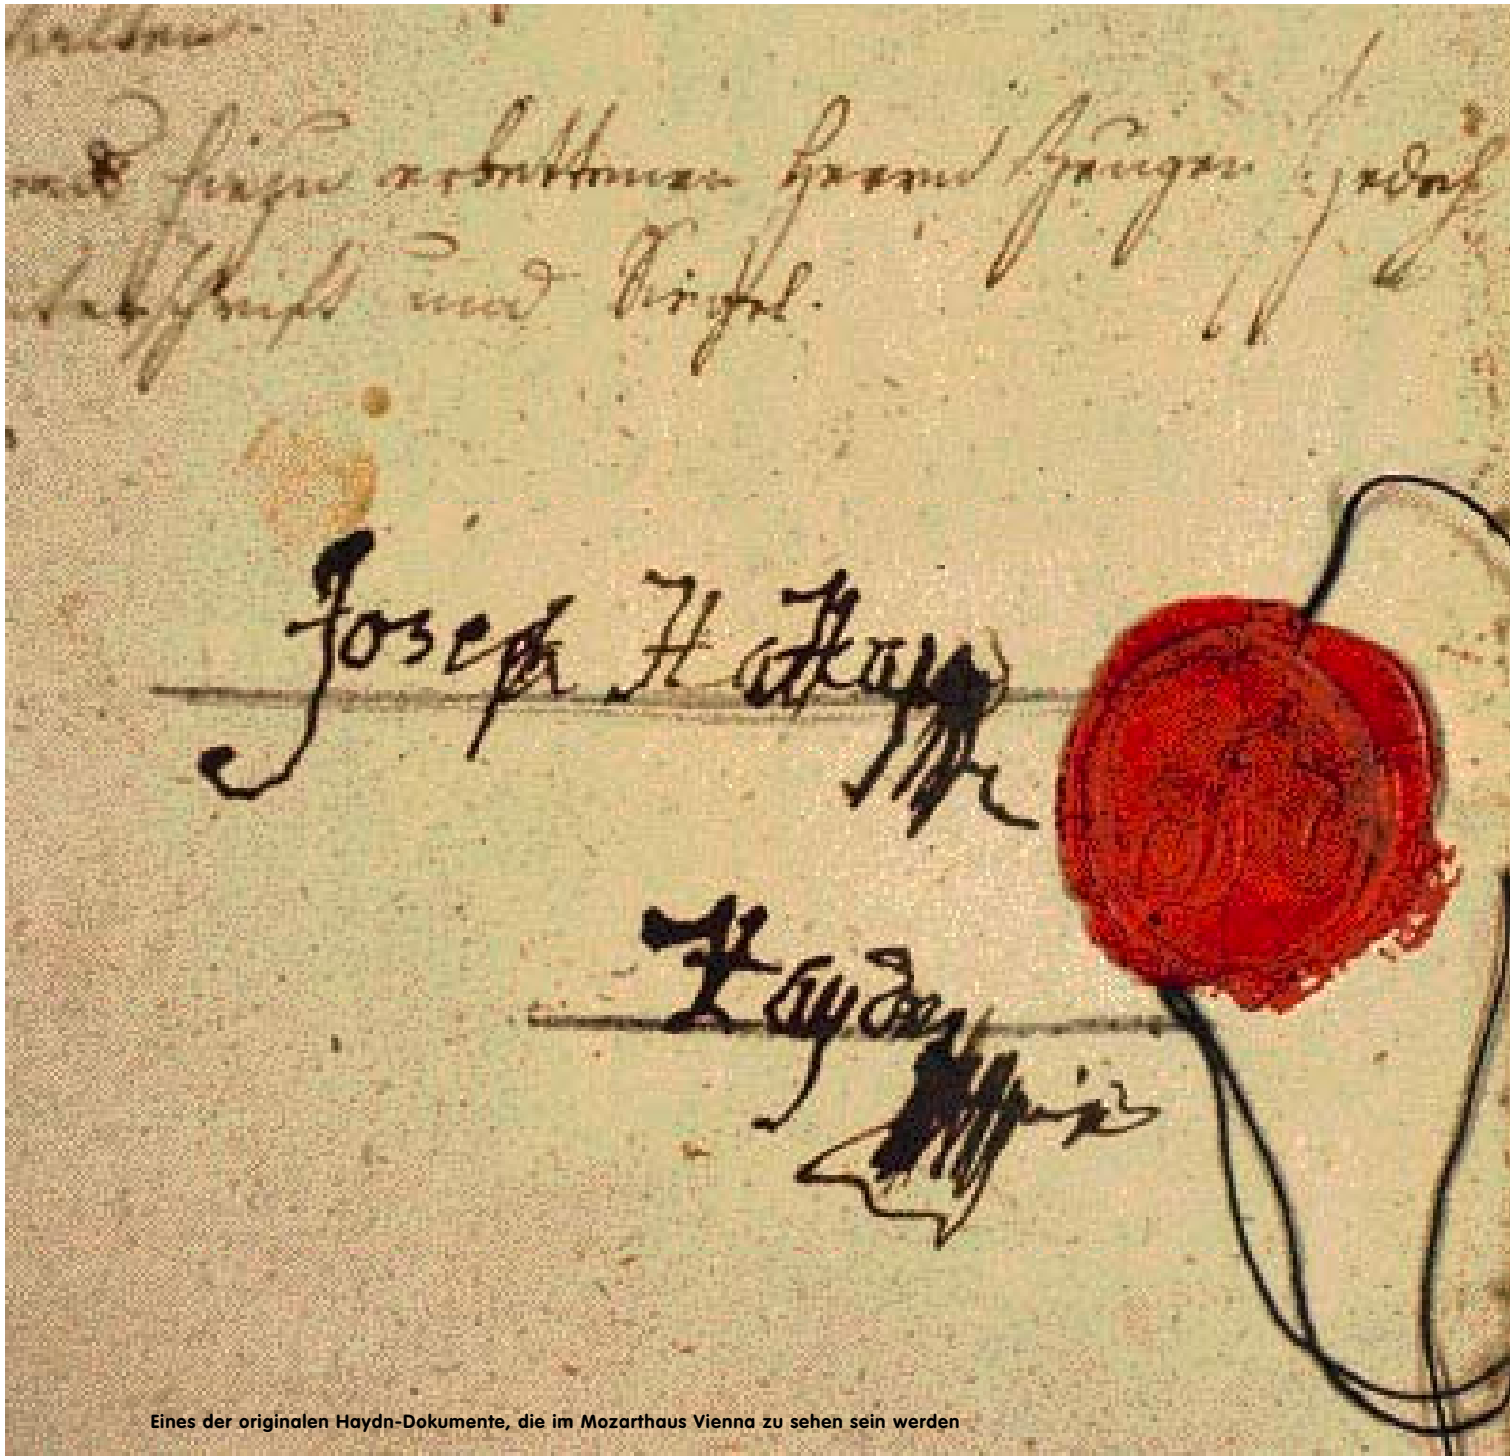 halten.
und hiezu erbettenen Herrn Zeugen jedoch
terschrift und Siegel.
Joseph
Haydn
Eines der originalen Haydn-Dokumente, die im Mozarthaus Vienna zu sehen sein werden